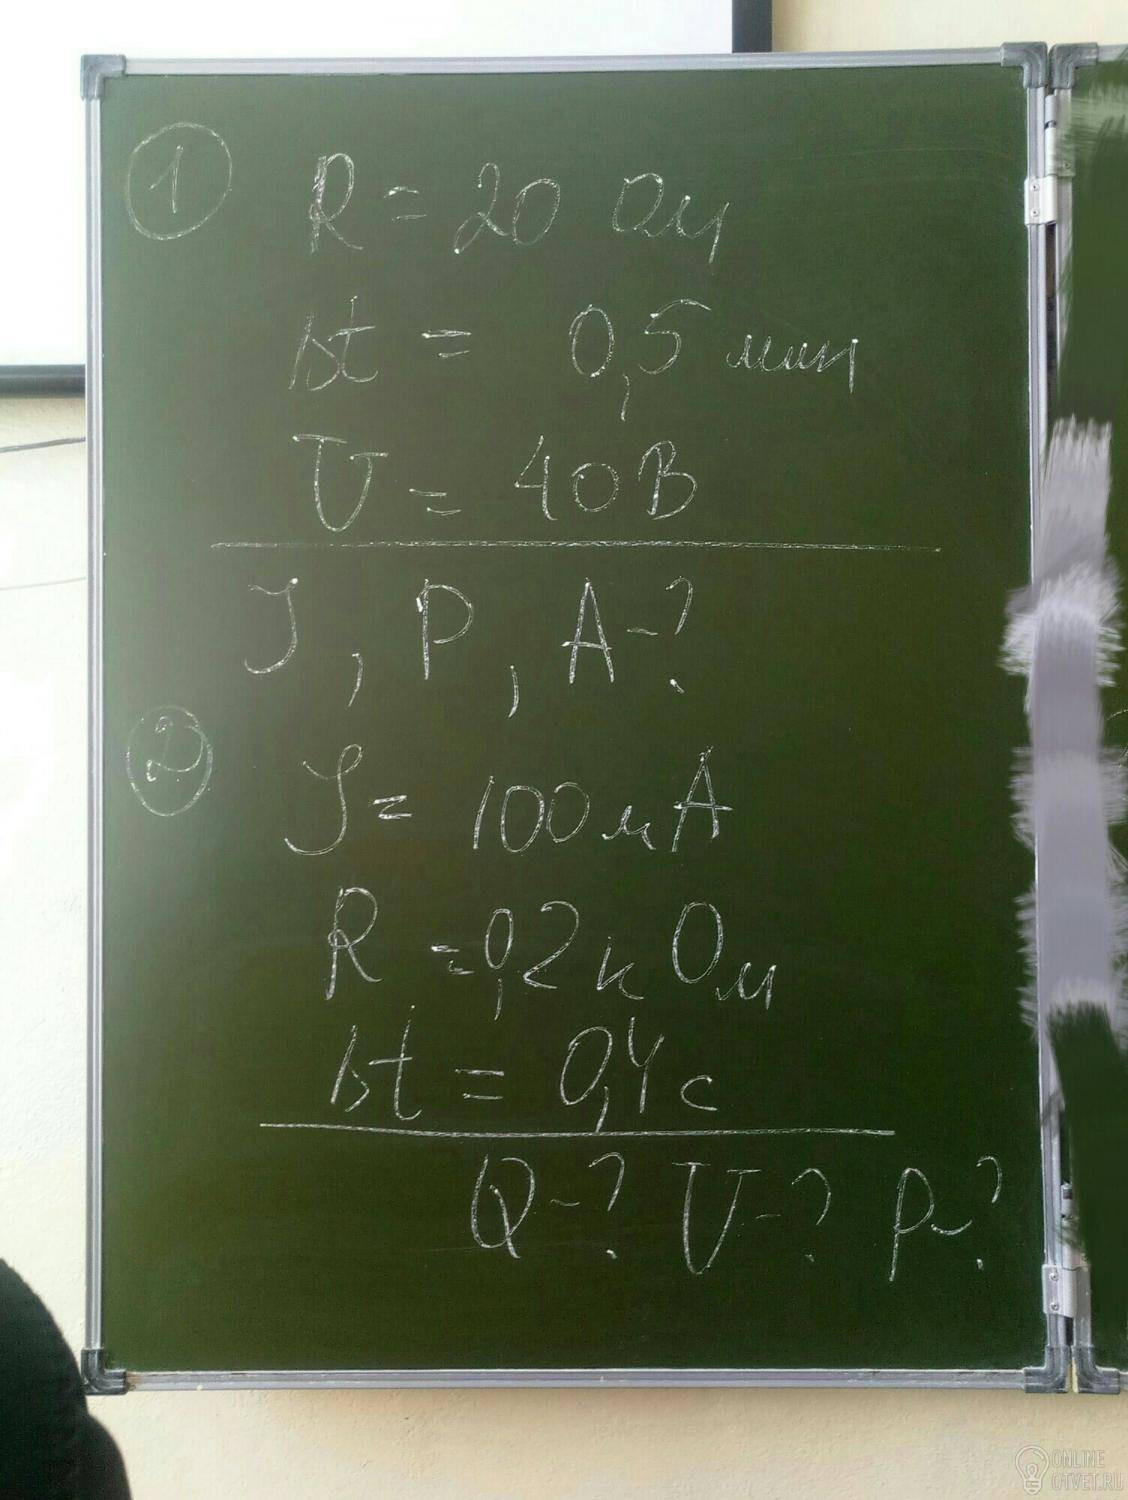 1 R = 20 Ом
Δt = 0,5 мин
U = 40В
I, P, A-?
2 I = 100 мА
R = 0,2 кОм
Δt = 0,4 с
Q-? U-? P-?
ONLINE
OTVET.RU